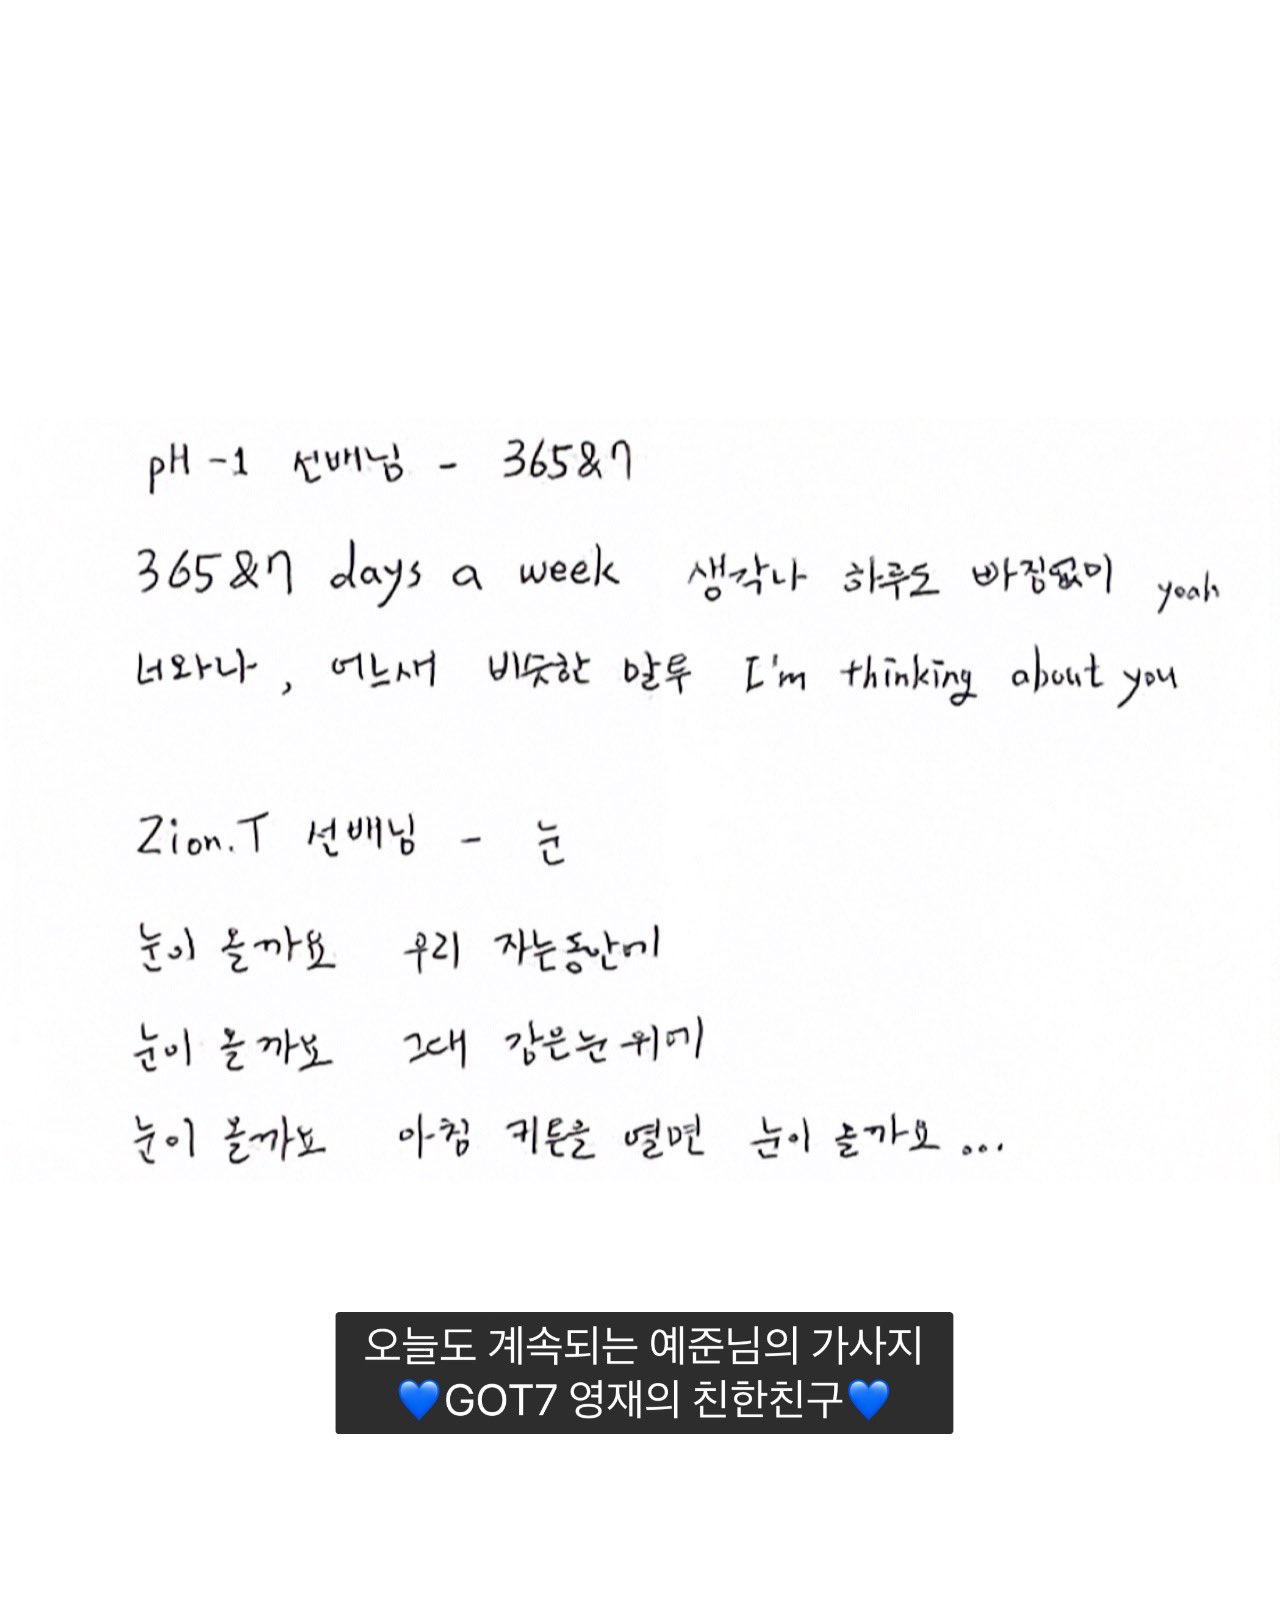 pH-1 선배님 - 365&7
365&7 days a week 생각나 하루도 빠짐없이 yeah
너와나, 어느새 비슷한 말투 I'm thinking about you
Zion.T 선배님 - 눈
눈이 올까요 우리 자는동안에
눈이 올까요 그대 감은눈 위에
눈이 올까요 아침 커튼을 열면 눈이 올까요...
오늘도 계속되는 예준님의 가사지
💙GOT7 영재의 친한친구💙